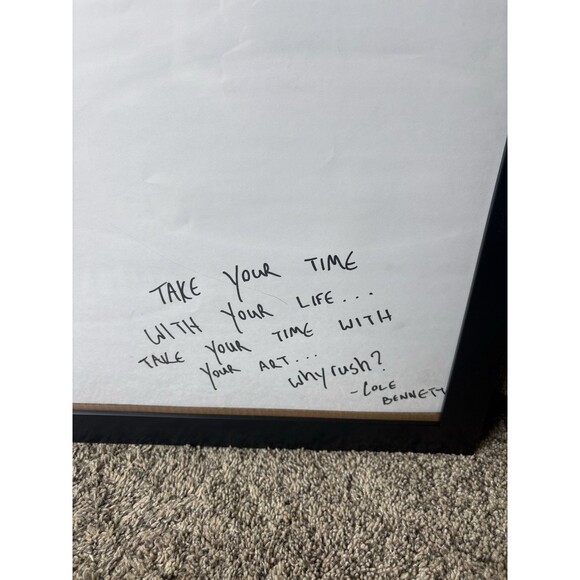 TAKE YOUR TIME
WITH YOUR LIFE...
TAKE YOUR TIME WITH
YOUR ART...
why rush?
-COLE
BENNETT